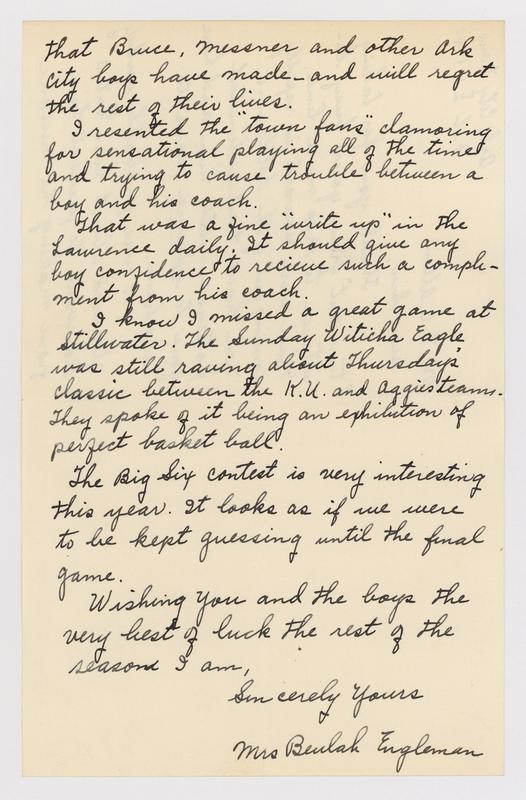 that Bruce, Messner and other Ark
City boys have made - and will regret
the rest of their lives.
I resented the "town fans" clamoring
for sensational playing all of the time
and trying to cause trouble between a
boy and his coach.
That was a fine "write up" in the
Lawrence daily. It should give any
boy confidence to recieve such a compli-
ment from his coach.
I know I missed a great game at
Stillwater. The Sunday Witicha Eagle
was still raving about Thursday's
classic between the K.U. and Aggies teams.
They spoke of it being an exhibition of
perfect basket ball.
The Big Six contest is very interesting
this year. It looks as if we were
to be kept guessing until the final
game.
Wishing you and the boys the
very best of luck the rest of the
season I am,
Sincerely Yours
Mrs Beulah Engleman